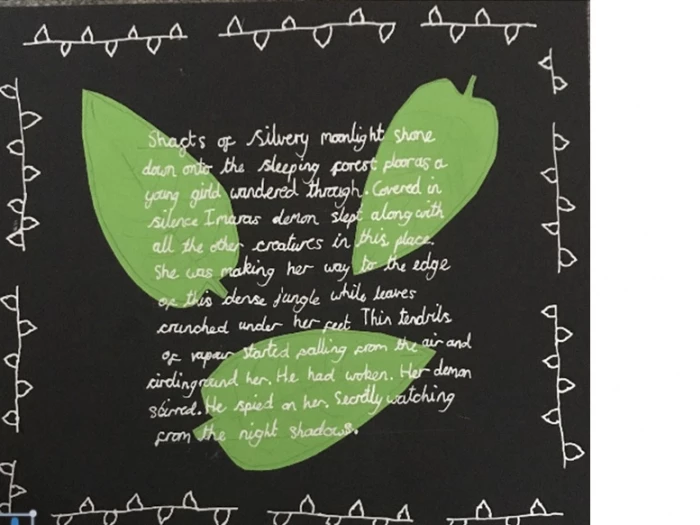 Shafts of silvery moonlight shone
down onto the sleeping forest floor as a
young girld wandered through. Covered in
silence Imaras demon slept along with
all the other creatures in this place.
She was making her way to the edge
of this dense jungle while leaves
crunched under her feet. Thin tendrils
of vapour started falling from the air and
circling round her. He had woken. Her demon
stirred. He spied on her. Secretly watching
from the night shadows.